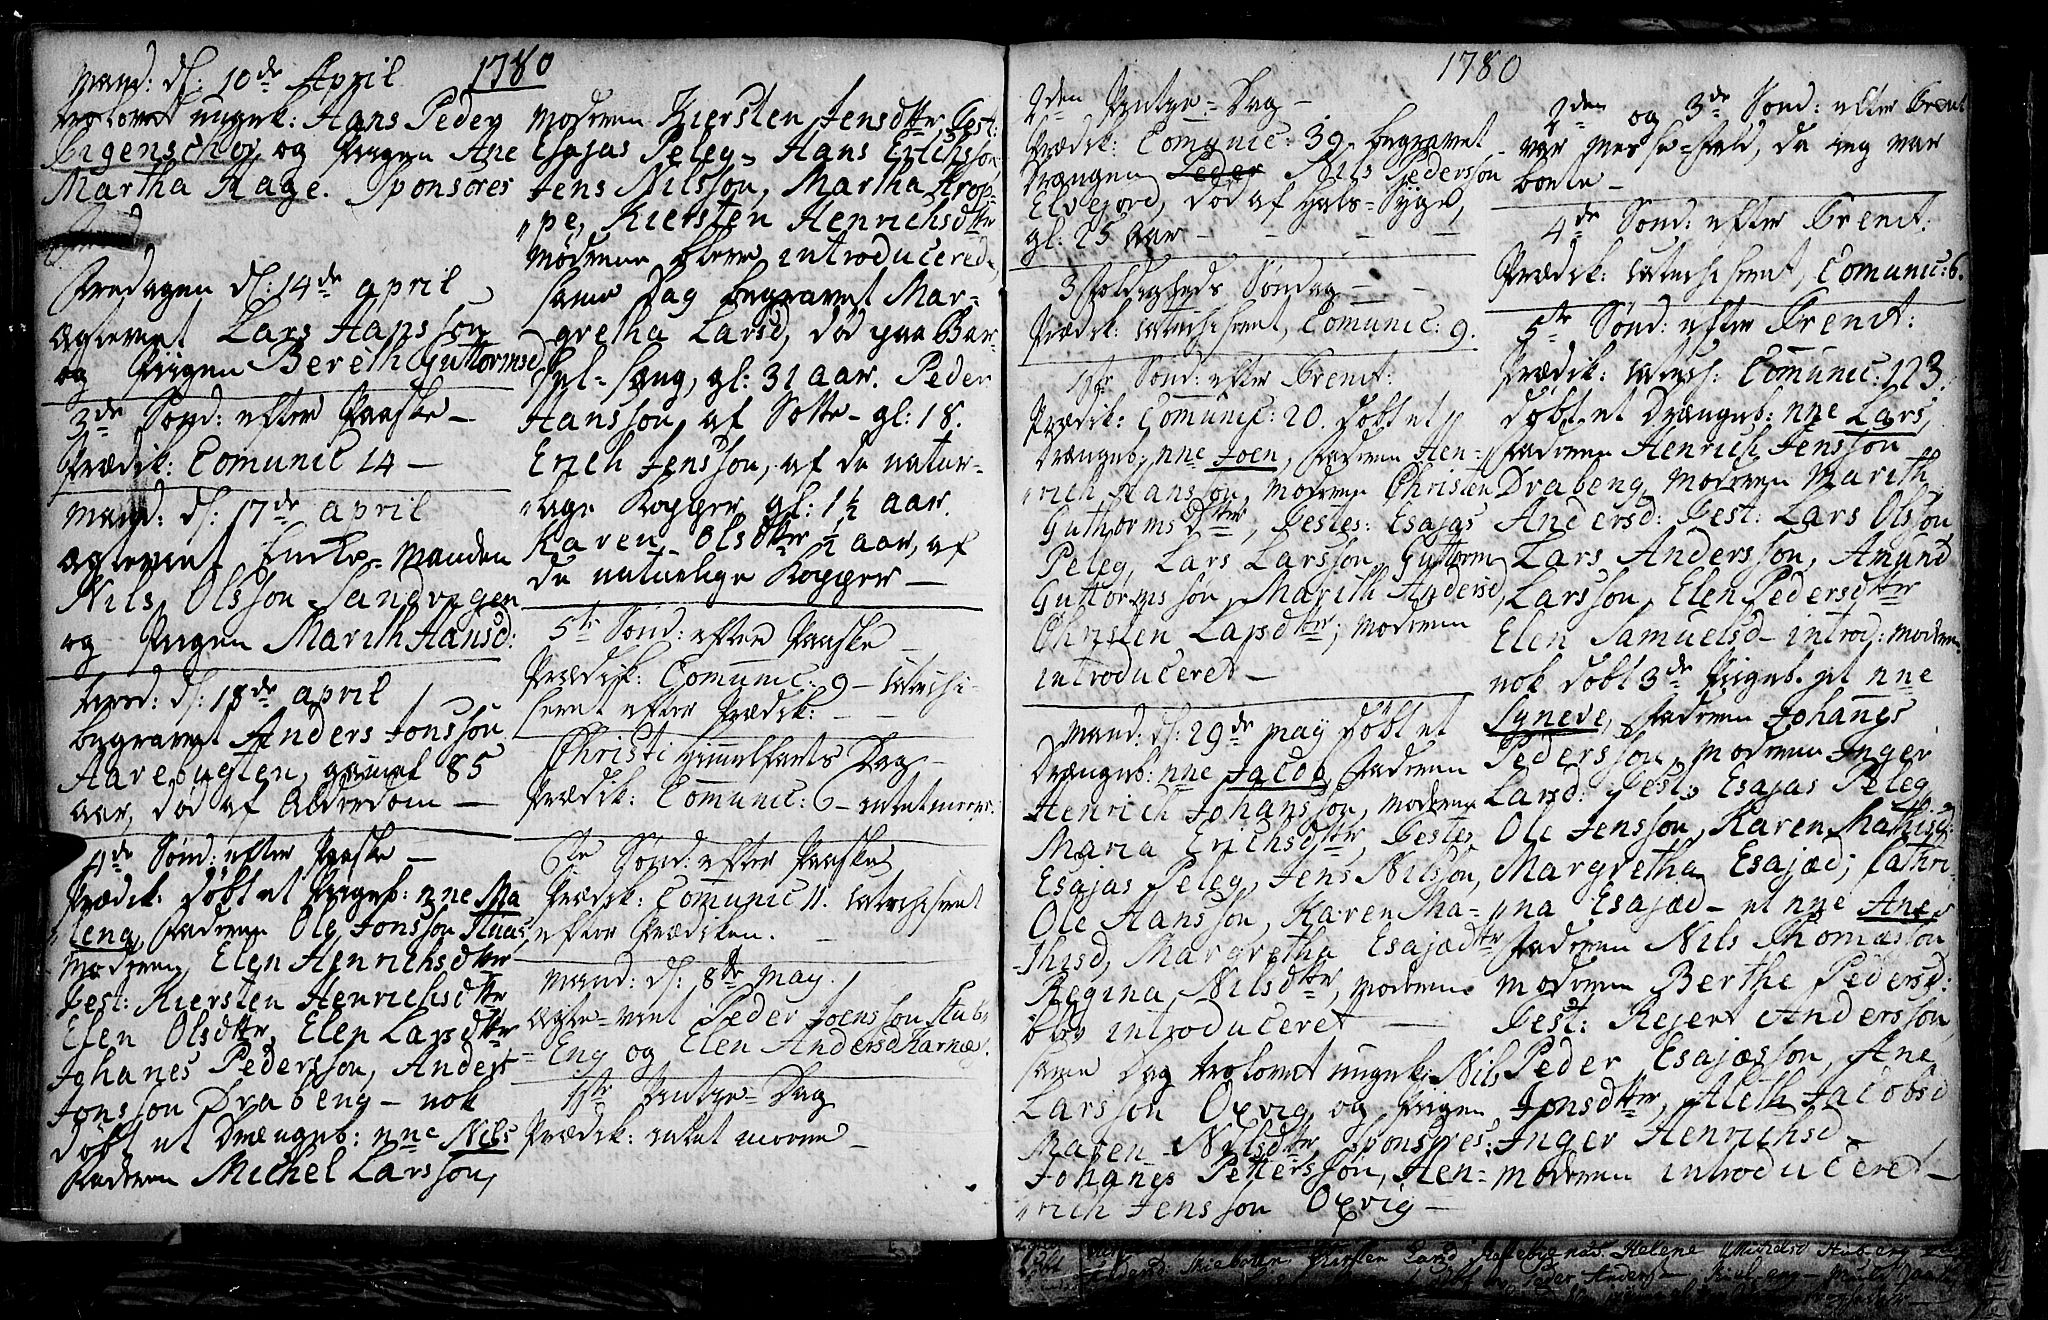 1780
Mand: d: 10de April
trolovet ungk: Hans Peder
Eigenschor og Pigen Ane
Martha Aage. Sponsores
Fredagen d: 14de april
Lars Hansson
og Pigen Bereth Guttormsd
3de Sönd: efter Paaske —
Prædik: Comunic 14 —
Mand: d: 17de april
Enke-Manden
Nils Olsson Sandvigen
og Pigen Marith Hansd:
d: 18de april
begravet Anders Jonsson
Aarebugten, gamel 85
aar, död af Alderdom —
4de Sönd: efter Paaske —
Prædik: döbt et Pigeb: nne Ma
leng, Faderen Ole Jonsson
Moderen Elen Henrichsdtter
Test: Kiersten Henrichsdtr
Elen Olsdttr, Elen Larsdttr
Johanes Pedersson, Anders
Jonsson Drabeng — nok
döbt et Drængeb: nne Nils
Faderen Michel Larsson,
Moderen Kiersten Jensdttr Test:
Esajas Peleg — Hans Erichsson
Jens Nilsson, Martha Krop-
pe, Kiersten Henrichsdttr
Mödrene bleve introducered,
samme Dag begravet Mar-
gretha Larsd, död paa Bar-
sel-sæng, gl: 31 aar. Peder
Hansson af Sotte — gl: 18.
Erich Jensson, af de natur-
lige Kopper gl: 1½ aar.
Karen Olsdttr ½ aar, af
de naturlige Kopper —
5te Sönd: efter Paaske —
Prædik: Comunic: 9 — catechi-
seret efter Prædik: — —
Christi Himmelfarts Dag —
Prædik: Comunic: 6 — intet meere:
6te Sönd: efter Paaske
Prædik: Comunic 11. catechiseret
efter Prædiken. —
Mand: d: 8de May.
Ægte-viet Peder Joensson Stub-
Eng og Elen Andersd Karnæs.
1ste Pintze-Dag
Prædik: intet meere —
1780
2den Pintze-Dag —
Prædik: Comunic: 39. begravet
Drængen Peder Nils Pedersson
Elvejord, död af Hals-Syge,
gl: 25 Aar — — — —
3foldigheds Söndag — — —
Prædik: catechiseret, Comunic: 9.
1ste Sönd: efter Trenit:
Prædik: Comunic: 20. döbt et
Drængeb: nne Joen, Faderen Hen-
rich Hansson, Moderen Christen
Guthormsdtter, Testes: Esajas
Peleg, Lars Larsson, Guttorm
Guttormsson, Marith Andersd,
Christen Larsdttr; Moderen
introduceret —
Mand: d: 29de May döbt et
Drængeb: nne Jacob, Faderen
Henrich Johansson, Moderen
Maria Erichsdttr, Testes
Esajas Peleg, Jens Nilsson,
Ole Hansson, Karen Ma-
thisd, Margretha Esajædttr
Regina Nilsdttr, Moderen
blev introduceret —
samme Dag trolovet ungk: Nils
Larsson Oxvig og Pigen
Maren Nilsdttr, Sponsores:
Johanes Pettersson, Hen-
rich Jensson Oxvig —
2den og 3de Sönd: efter Trenit
var Messe-fald, da ieg var
borte —
4de Sönd: efter Trenit:
Prædik: catechiseret, Comunic: 6.
5te Sönd: efter Trenit:
Prædik: catech: Comunic: 123.
döbt et Drængeb: nne Lars,
Faderen Henrich Jensson
Drabeng, Moderen Marith
Andersd: Test: Lars Olsson
Lars Andersson, Amund
Larsson, Elen Pedersdttr
Elen Samuelsd — introd: Moderen —
nok döbt 3de Pigeb. et nne
Syneve, Faderen Johanes
Pedersson, Moderen Inger
Larsd: Test: Esajas Peleg,
Ole Jensson, Karen Mathisd:
Margretha Esajæd; Cathri-
na Esajæd — et nne Ane,
Faderen Nils Thomasson
Moderen Berthe Pedersd:
Test: Rejert Andersson,
Peder Esajæsson, Ane
Jonsdttr, Aleth Jacobsd
Inger Henrichsd —
Moderen introduceret —